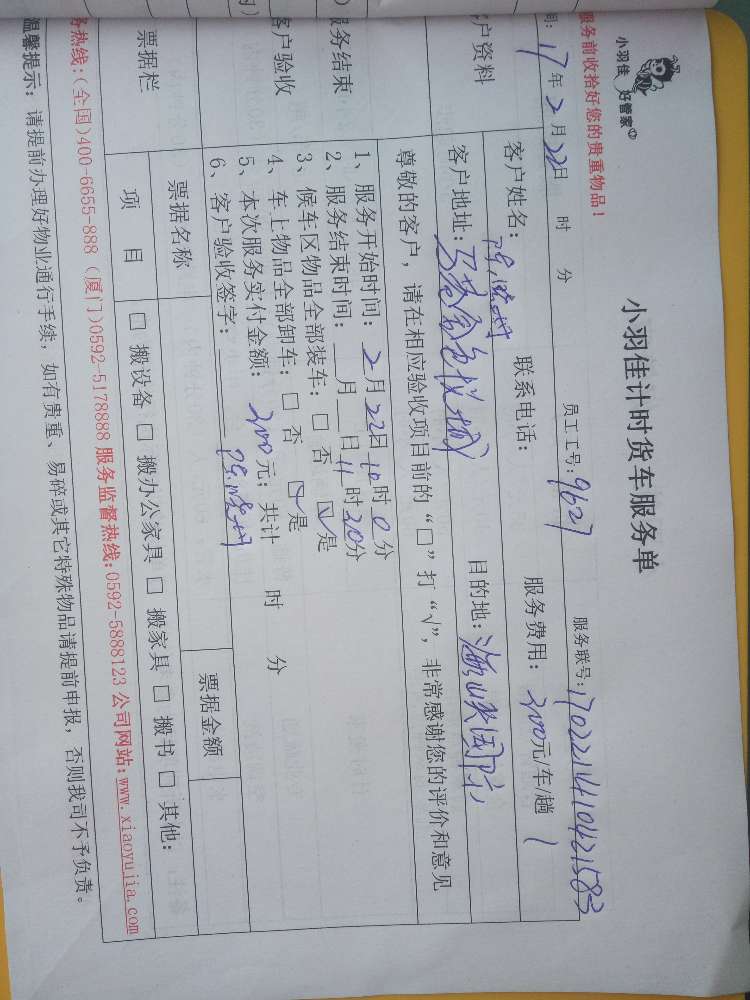 小羽佳 好管家
小羽佳计时货车服务单
服务前收拾好您的贵重物品!
间: 17年2月22日 时 分 员工工号: 9627 服务联号: 1702211410421583
户资料
客户姓名: 联系电话: 服务费用: 200元/车/趟 1
客户地址: 目的地:
尊敬的客户，请在相应验收项目前的“□”打“√”，非常感谢您的评价和意见
服务结束
客户验收
1、服务开始时间: 2月22日10时0分
2、服务结束时间: 月 日11时20分
3、候车区物品全部装车: □ 否 ☑ 是
4、车上物品全部卸车: □ 否 ☑ 是
5、本次服务实付金额: 200元; 共计 时 分
6、客户验收签字:
票据栏
票据名称 票据金额
项 目 □ 搬设备 □ 搬办公家具 □ 搬家具 □ 搬书 □ 其他:
务热线:(全国)400-6655-888 (厦门)0592-5178888 服务监督热线:0592-5888123 公司网站:www.xiaoyujia.com
温馨提示: 请提前办理好物业通行手续，如有贵重、易碎或其它特殊物品请提前申报，否则我司不予负责。